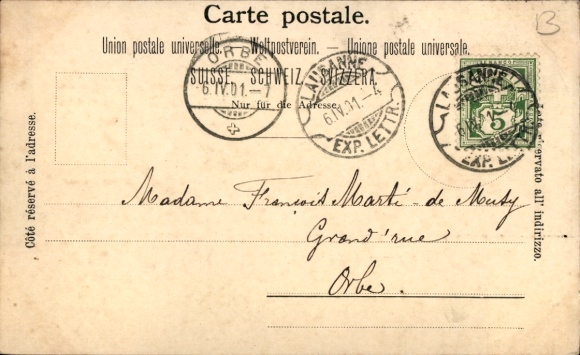 Carte postale.
B
Union postale universelle. — Weltpostverein. — Unione postale universale.
SUISSE. SCHWEIZ. SVIZZERA.
Nur für die Adresse.
ORBE
6.IV.01.-7
LAUSANNE
6.IV.01.-4
EXP. LETTR.
LAUSANNE
EXP. LETTR.
5
Côté réservé à l'adresse.
riservato all' indirizzo.
Madame François Marti-de Musy
Grand'rue
Orbe.